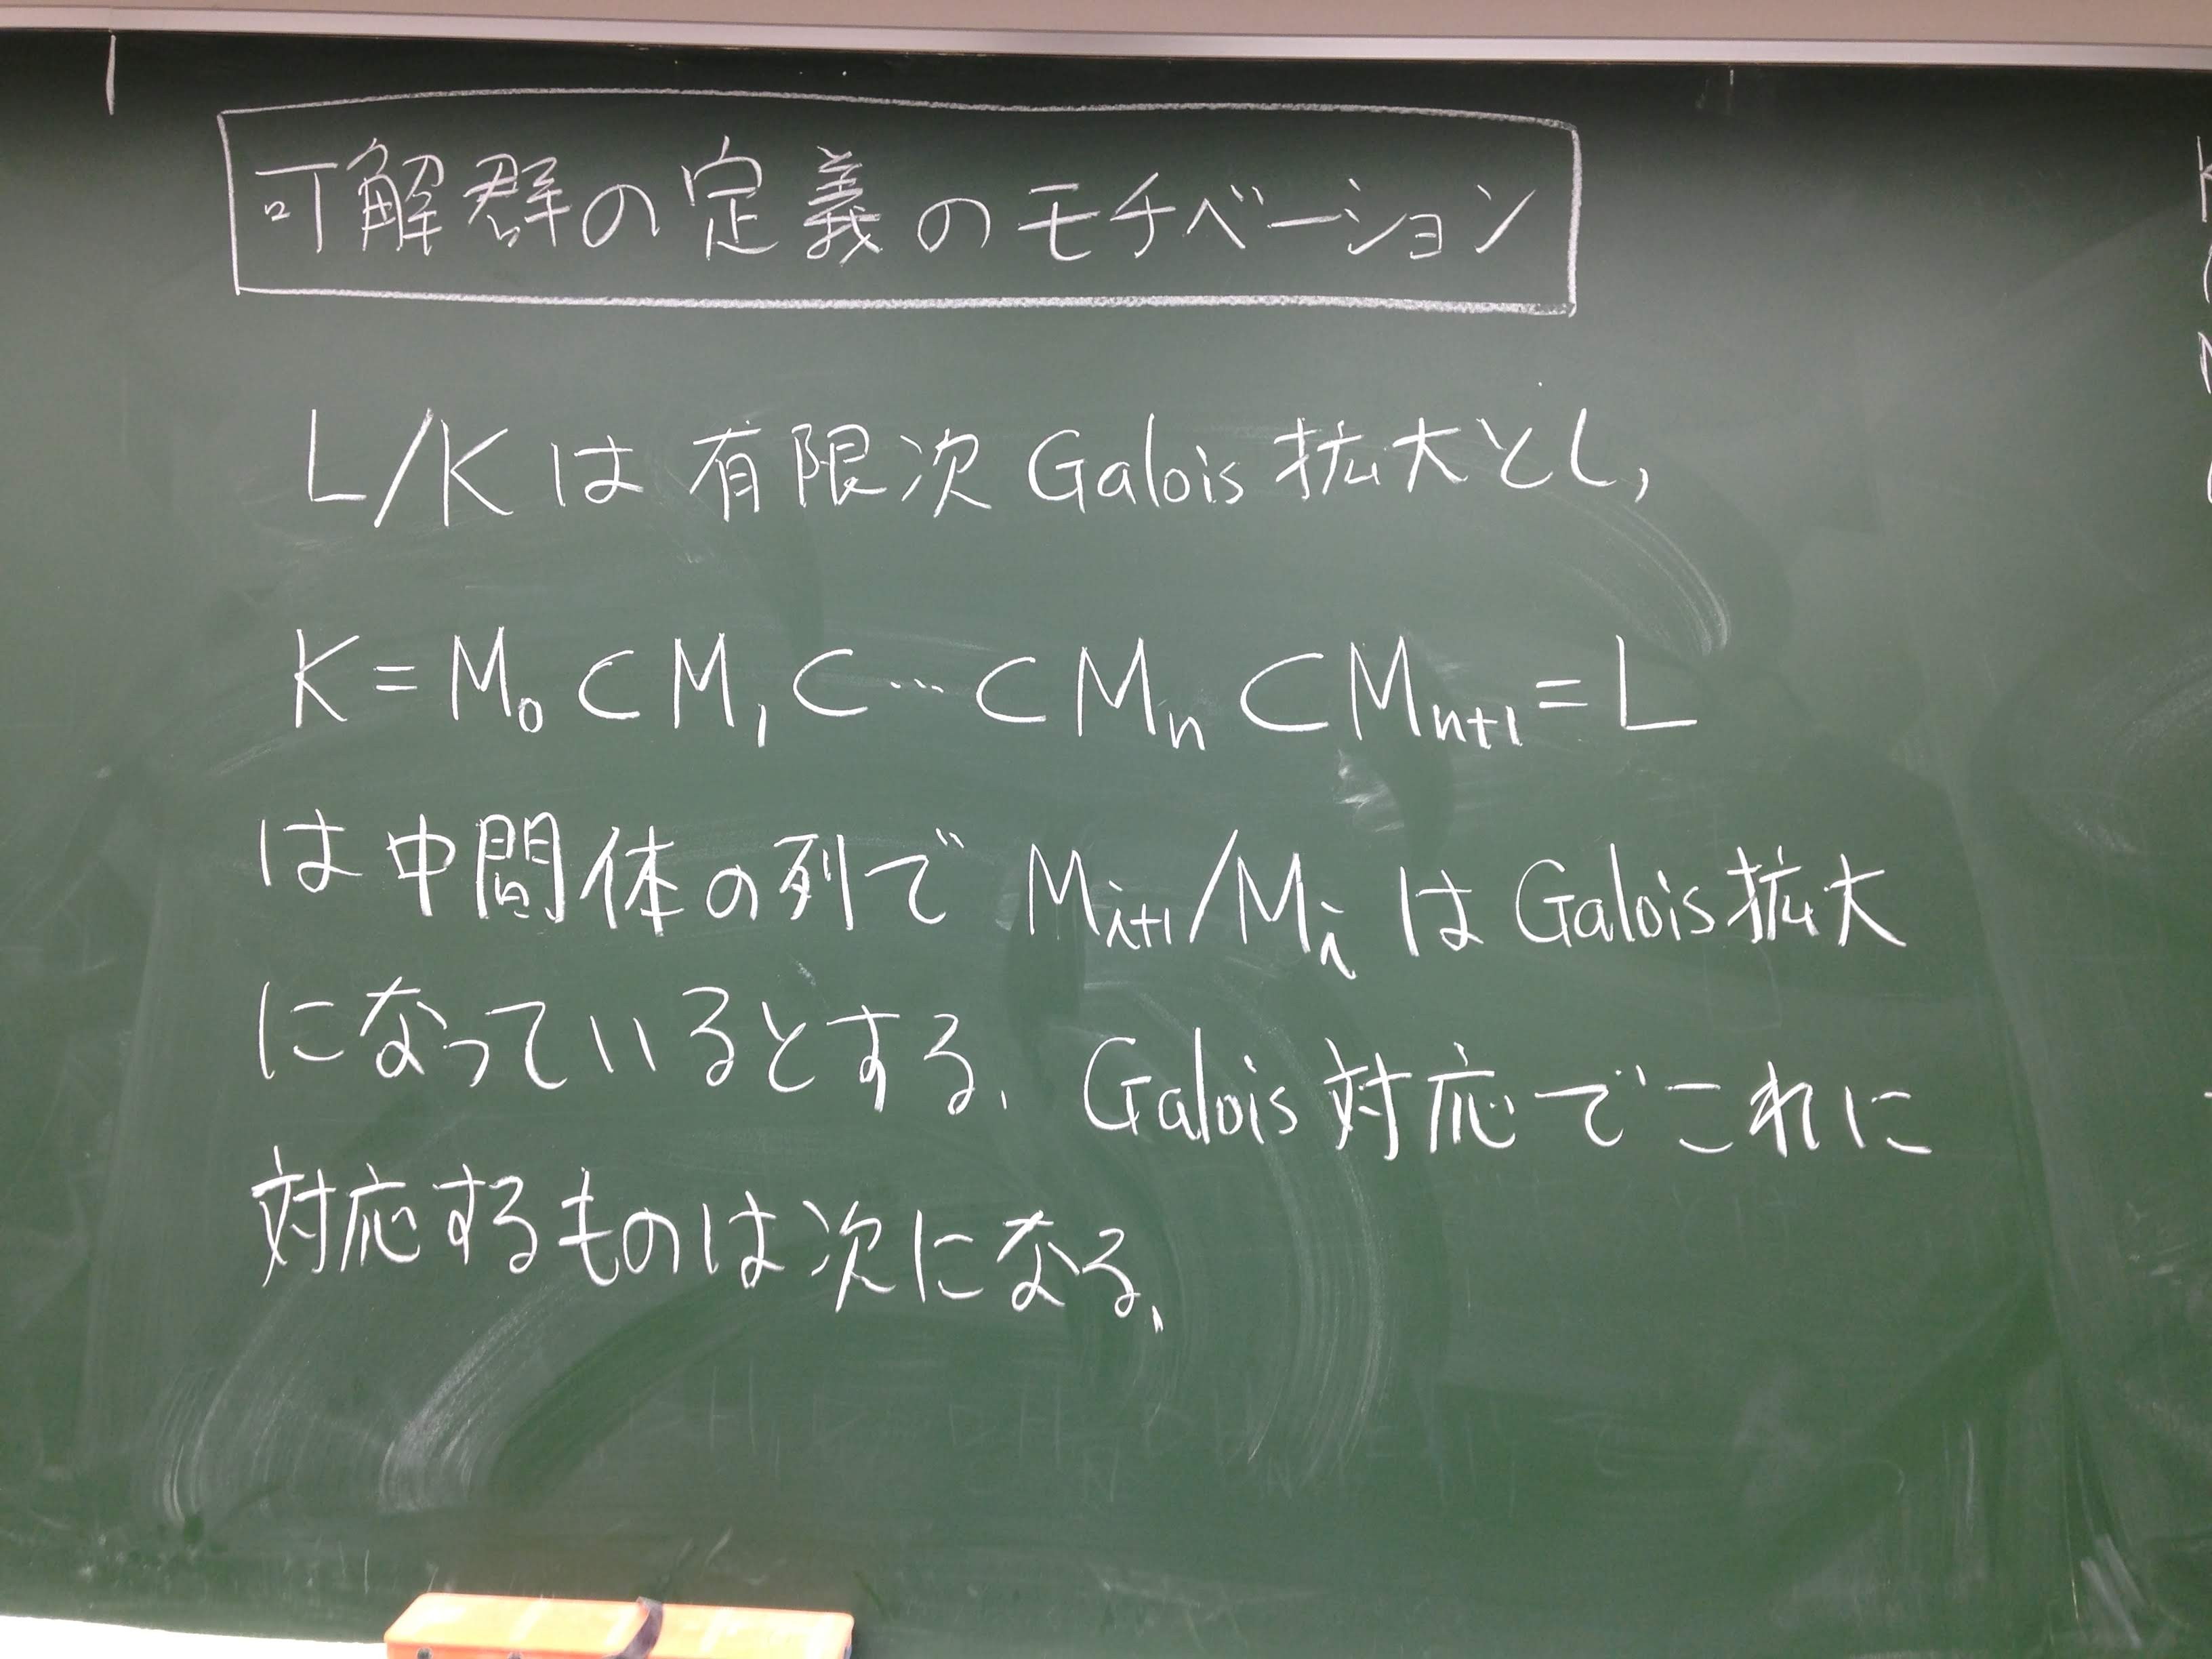 可解群の定義のモチベーション
L/Kは有限次Galois拡大とし,
K=M₀⊂M₁⊂…⊂Mₙ⊂Mₙ₊₁=L
は中間体の列で Mᵢ₊₁/Mᵢ は Galois拡大
になっているとする. Galois対応でこれに
対応するものは次になる.